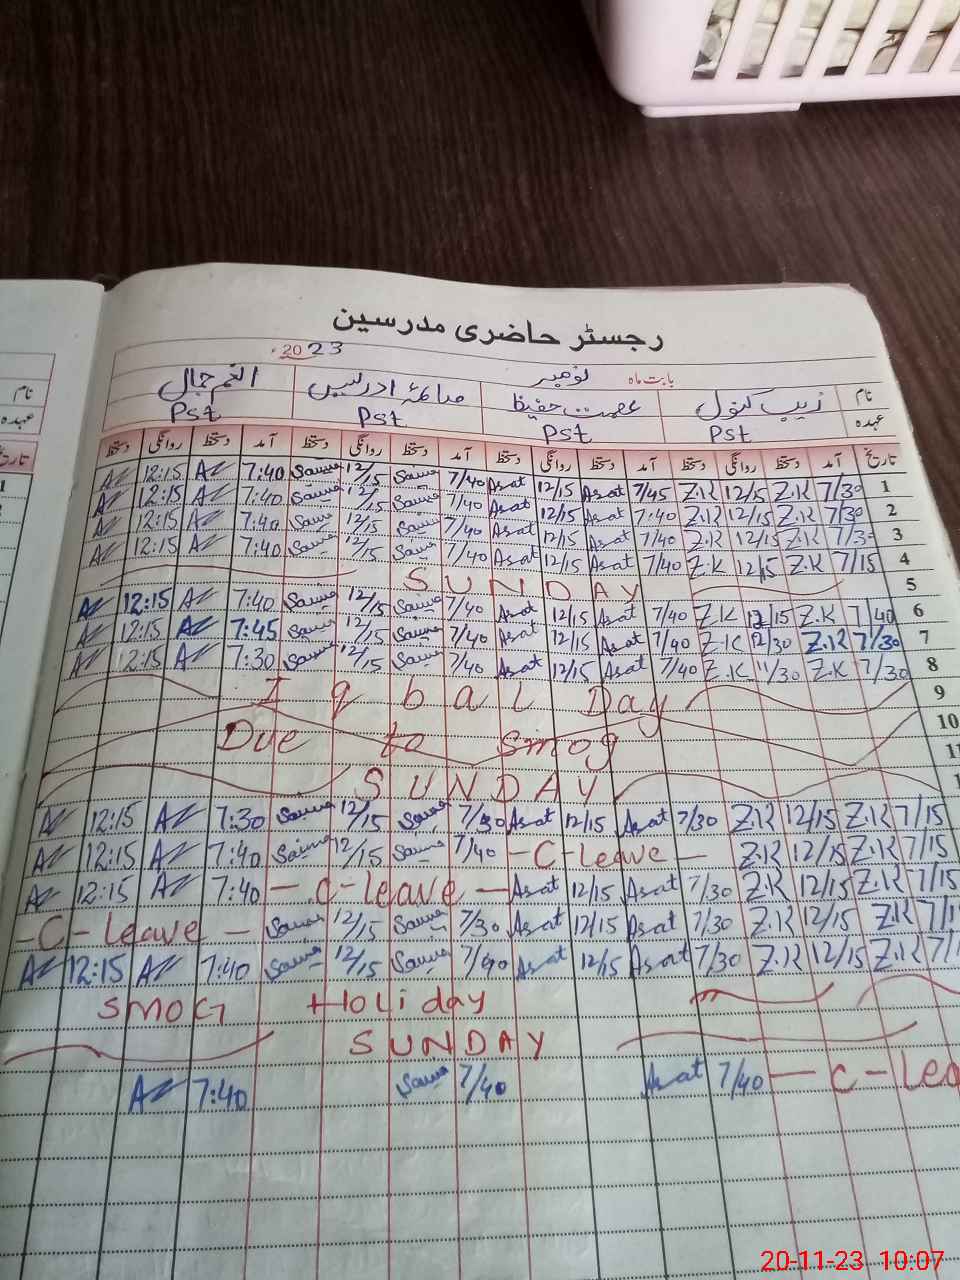 رجسٹر حاضری مدرسین
بابت ماہ نومبر 2023
نام زیب کنول عصمت حفیظ صائمہ ادریس
عہدہ Pst Pst Pst Pst
تاریخ آمد دستخط روانگی دستخط آمد دستخط روانگی دستخط آمد دستخط روانگی دستخط آمد دستخط روانگی دستخط
AZ 12:15 AZ 7:40 12/15 7/40 Asat 12/15 Asat 7/45 Z.K 12/15 Z.K 7/30 1
AZ 12:15 AZ 7:40 12/15 7/40 Asat 12/15 Asat 7:40 Z.K 12/15 Z.K 7/30 2
AZ 12:15 AZ 7:40 12/15 7/40 Asat 12/15 Asat 7/40 Z.K 12/15 Z.K 3
AZ 12:15 AZ 7:40 12/15 7/40 Asat 12/15 Asat 7/40 Z.K 12/15 Z.K 7/15 4
SUNDAY 5
AZ 12:15 AZ 7:40 12/15 7/40 Asat 12/15 Asat 7/40 Z.K 12/15 Z.K 7/40 6
AZ 12:15 AZ 7:45 12/15 7/40 Asat 12/15 Asat 7/40 Z.K 12/30 Z.K 7/30 7
AZ 12:15 AZ 7:30 12/15 7/40 Asat 12/15 Asat 7/40 Z.K 11/30 Z.K 7/30 8
Iqbal Day 9
Due to smog 10
11
SUNDAY 1
AZ 12:15 AZ 7:30 12/15 7/30 Asat 12/15 Asat 7/30 Z.K 12/15 Z.K 7/15
AZ 12:15 AZ 7:40 12/15 7/40 -C-Leave- Z.K 12/15 Z.K 7/15
AZ 12:15 AZ 7:40 -C-leave- Asat 12/15 Asat 7/30 Z.K 12/15 Z.K 7/15
-C-Leave- 12/15 7/30 Asat 12/15 Asat 7/30 Z.K 12/15 Z.K 7/1
AZ 12:15 AZ 7:40 12/15 7/40 Asat 12/15 Asat 7/30 Z.K 12/15 Z.K 7/1
SMOG Holiday
SUNDAY
AZ 7:40 7/40 Asat 7/40 -C-Lea
نام
عہدہ
تاریخ
1
20-11-23 10:07